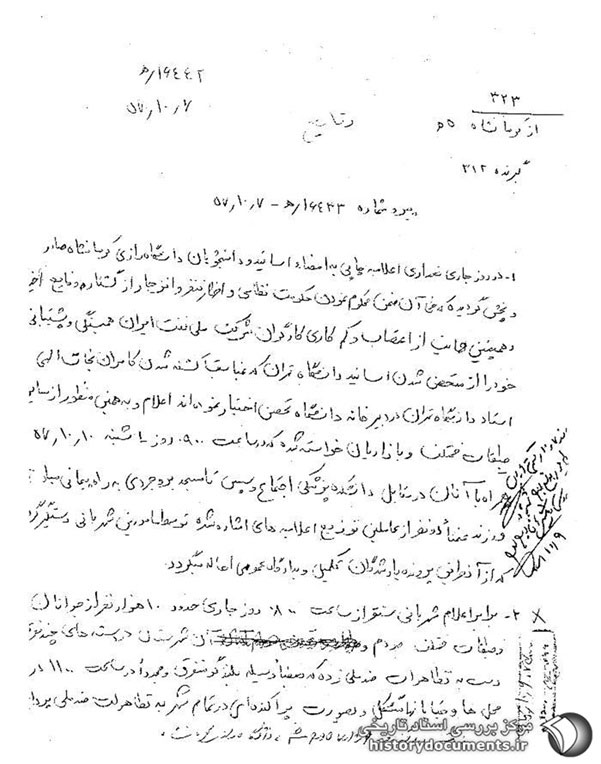 ۱۶۴۴۲/ه
۵۷,۱۰,۷
۳۲۳
از کرمانشاه ۵ه
گیرنده ۳۱۲
پیرو شماره ۱۶۴۳۳/ه - ۵۷,۱۰,۷
۱- در روز جاری تعدادی اعلامیه چاپی به امضاء اساتید و دانشجویان دانشگاه رازی کرمانشاه صادر
و پخش گردیده که در آن ضمن محکوم نمودن حکومت نظامی و اظهار تنفر و انزجار از کشتار و وقایع اخیر
و همچنین حمایت از اعتصاب و کم کاری کارگران شرکت ملی نفت ایران همبستگی و پشتیبانی
خود را از متحصن شدن اساتید دانشگاه تهران که بمناسبت کشته شدن کامران نجات الهی
استاد دانشگاه تهران در دبیرخانه دانشگاه تحصن اختیار نموده اند اعلام و به همین منظور از سایر
طبقات مختلف و بازاریان خواسته شده که در ساعت ۰۹۰۰ روز یکشنبه ۵۷,۱۰,۱۰
همراه با آنان در مقابل دانشکده پزشکی اجتماع و سپس تا مسجد بروجردی به راه پیمائی
ورزند ضمناً دو نفر از عاملین توزیع اعلامیه های اشاره شده توسط مامورین شهربانی دستگیر
که از آن طریق پرونده یاد شدگان تکمیل و به دادگاه عمومی احاله میگردد.
۲- برابر اعلام شهربانی سنقر از ساعت ۰۸۰۰ روز جاری حدود ۱۰ هزار نفر از جوانان
و طبقات مختلف مردم شهرستان در دسته های چند نفری
دست به تظاهرات ضد ملی زده که بعضاً وسیله متفرق و مجدداً در ساعت ۱۱۰۰ در
و خیابانها متشکل و بصورت پراکنده ای در تمام شهر به تظاهرات ضد ملی
مرکز بررسی اسناد تاریخی
historydocuments.ir